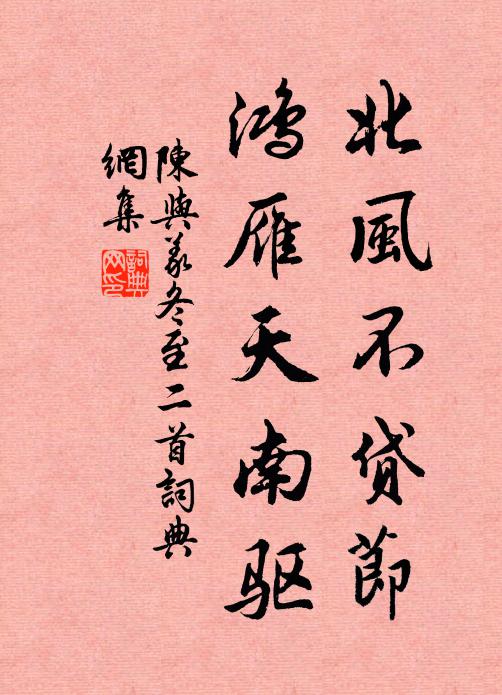 北風不貸節
鴻雁天南驱
陳與義冬至二首詞典
網集
詞典网印